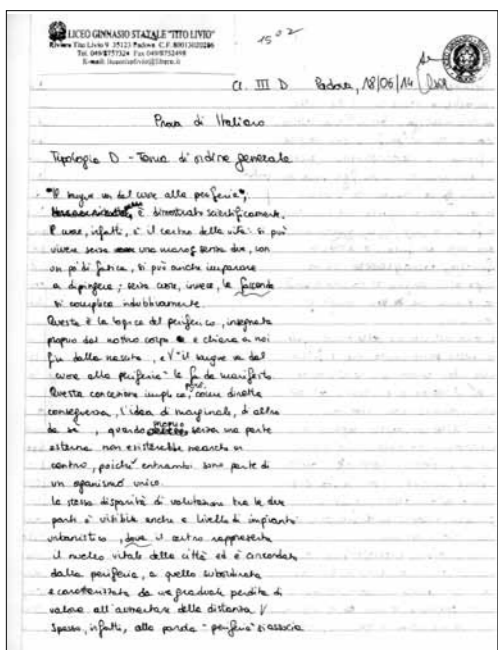 LICEO GINNASIO STATALE "TITO LIVIO"
Riviera Tito Livio 9 35123 Padova C.F. 80013020286
Tel. 049/8757324 Fax 049/8752498
15 02
Cl. III D Padova, 18/06/14
Prova di Italiano
Tipologia D - Tema di ordine generale
"Il sangue va dal cuore alla periferia";
è dimostrato scientificamente.
Il cuore, infatti, è il centro della vita: si può
vivere senza una mano, senza due, con
un po' di fatica, si può anche imparare
a dipingere; senza cuore, invece, la faccenda
si complica indubbiamente.
Questa è la logica del periferico, insegnata
proprio dal nostro corpo e chiara a noi
fin dalla nascita, e "il sangue va dal
cuore alla periferia" le fa da manifesto.
Questa concezione implica, però, come diretta
conseguenza, l'idea di marginale, di altro
da sé, quando senza una parte
esterna non esisterebbe neanche un
centro, poiché entrambi sono parte di
un organismo unico.
La stessa disparità di valutazione tra le due
parti è visibile anche a livello di impianti
urbanistico, dove il centro rappresenta
il nucleo vitale della città ed è circondato
dalla periferia, a quello subordinata
e caratterizzata da una graduale perdita di
valore all'aumentare della distanza
Spesso, infatti, alla parola "periferia" si associa